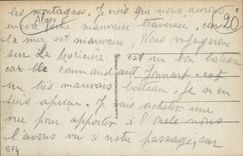 les montagnes. Je crois que nous aurons
Alger
encore une mauvaise traversée, car
la mer est mauvaise, Nous voyageons
sur La est un bon bateau
car le commandant est
un très mauvais bateau, je m'en
suis aperçu. Je vais acheter une
vue pour apporter à l'oncle nous
l'avons vu à notre passage, sur
20